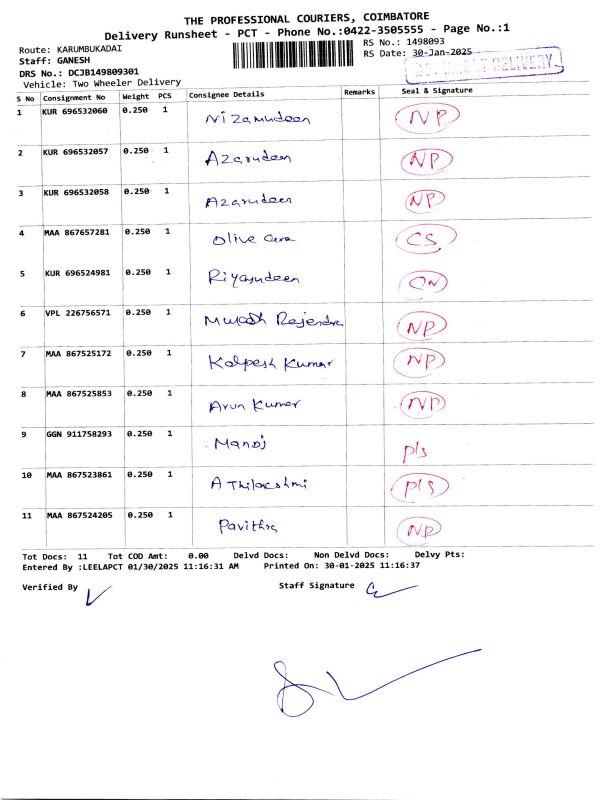 THE PROFESSIONAL COURIERS, COIMBATORE
Delivery Runsheet - PCT - Phone No.:0422-3505555 - Page No.:1
Route: KARUMBUKADAI
RS No.: 1498093
Staff: GANESH
RS Date: 30-Jan-2025
DRS No.: DCJB149809301
DOCUMENT DELIVERY
Vehicle: Two Wheeler Delivery
S No Consignment No Weight PCS Consignee Details Remarks Seal & Signature
1 KUR 696532060 0.250 1 Nizamudeen NP
2 KUR 696532057 0.250 1 Azarudeen NP
3 KUR 696532058 0.250 1 Azarudeen NP
4 MAA 867657281 0.250 1 Olive Cera CS
5 KUR 696524981 0.250 1 Riyajudeen CN
6 VPL 226756571 0.250 1 Mukesh Rajendra NP
7 MAA 867525172 0.250 1 Kalpesh Kumar NP
8 MAA 867525853 0.250 1 Arun Kumar NP
9 GGN 911758293 0.250 1 Manoj p/s
10 MAA 867523861 0.250 1 A Thilakshmi p/s
11 MAA 867524205 0.250 1 Pavithra NP
Tot Docs: 11 Tot COD Amt: 0.00 Delvd Docs: Non Delvd Docs: Delvy Pts:
Entered By :LEELAPCT 01/30/2025 11:16:31 AM Printed On: 30-01-2025 11:16:37
Verified By Staff Signature